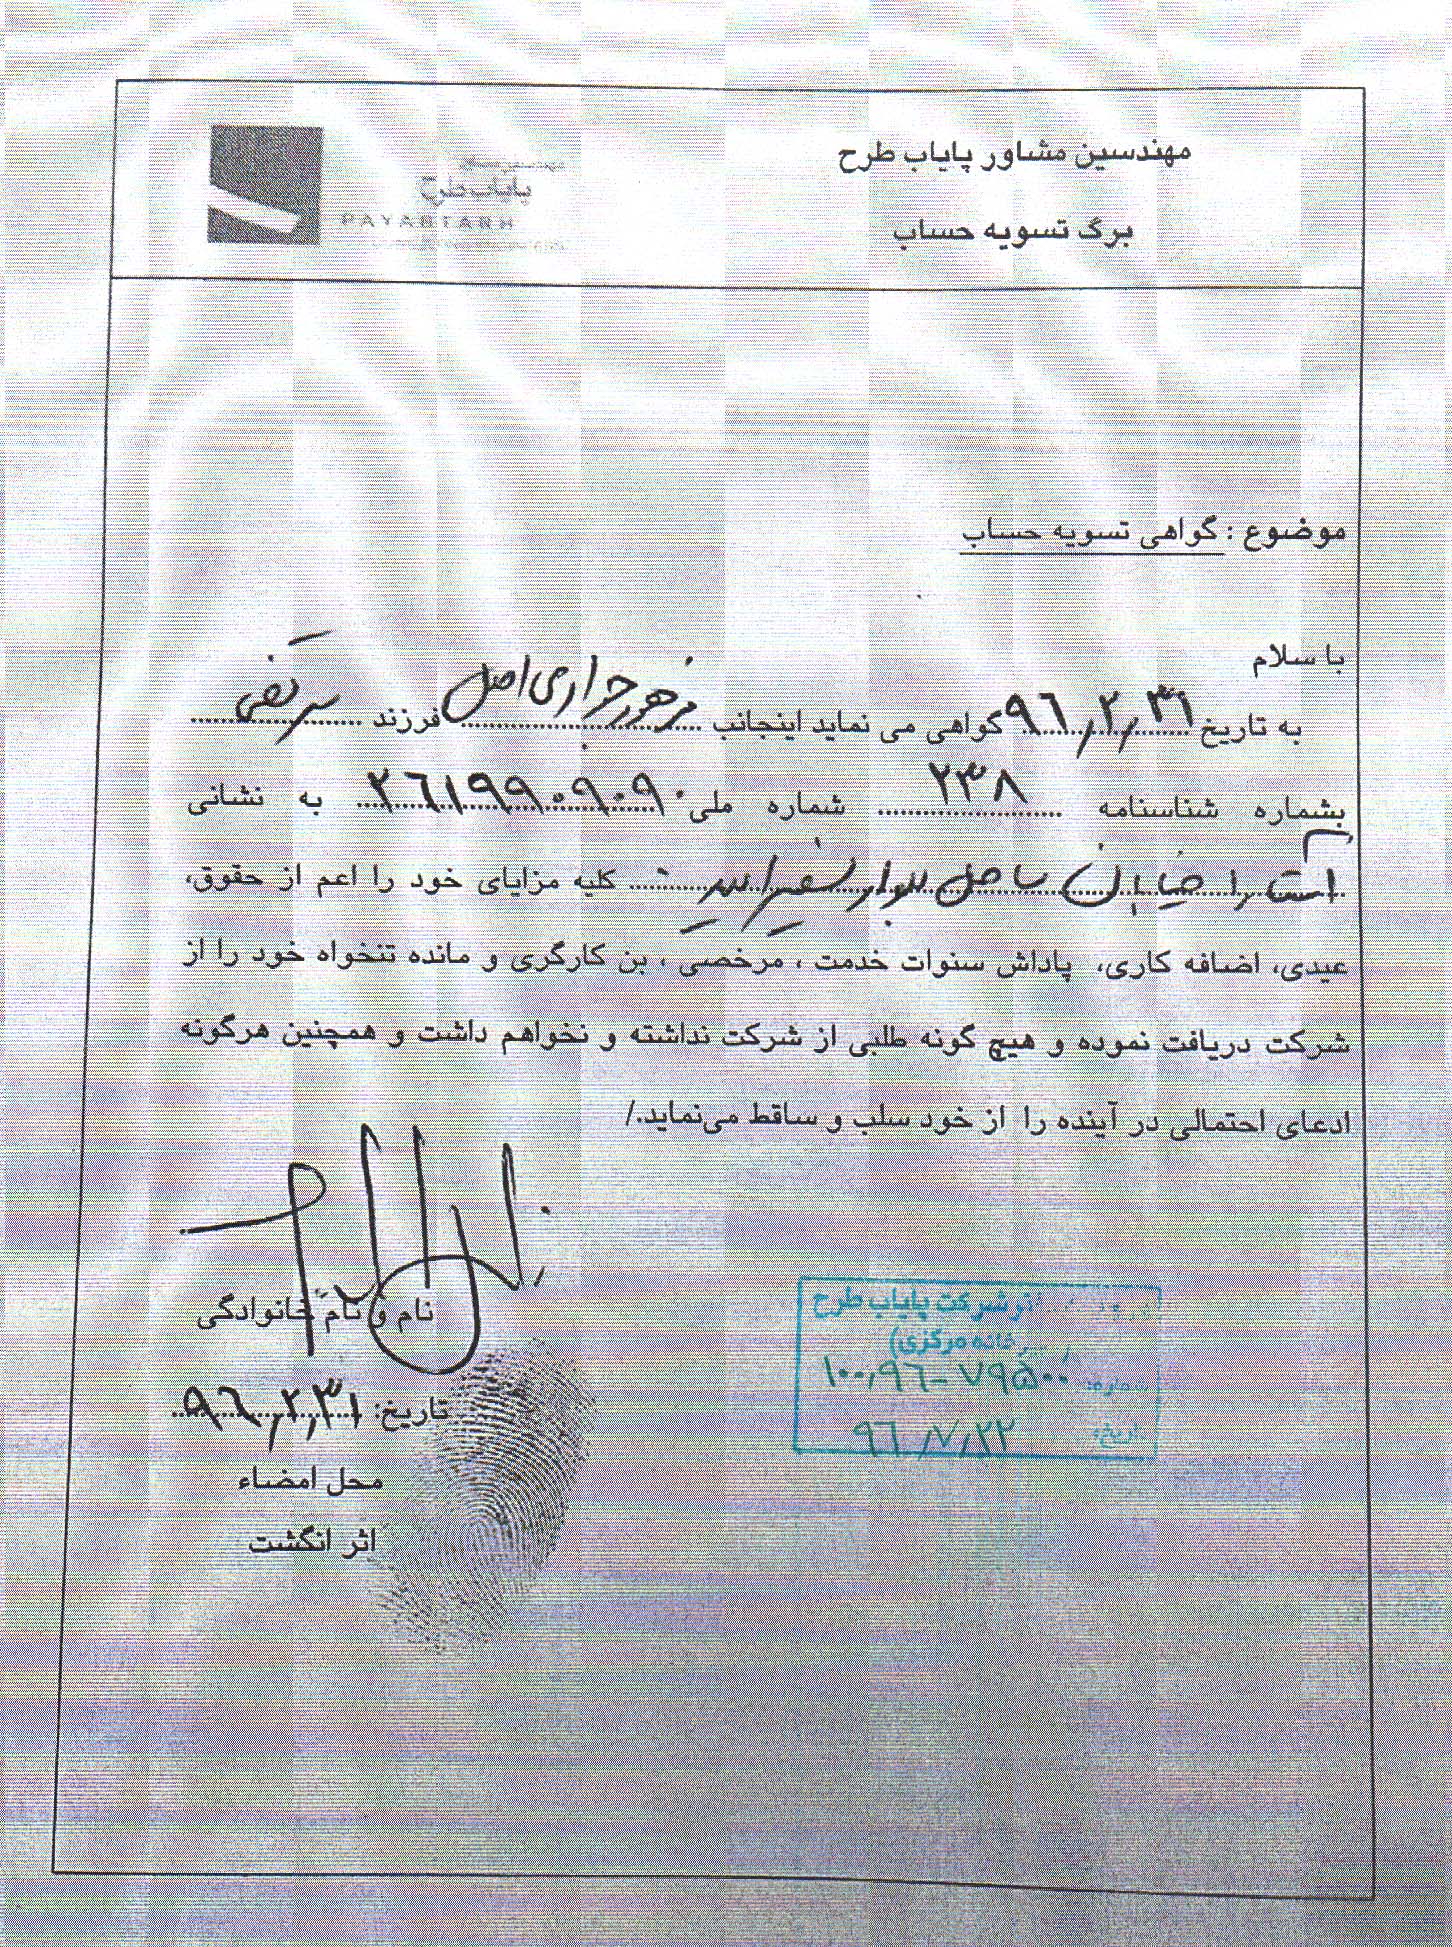 مهندسین مشاور پایاب طرح
برگ تسویه حساب
پایاب طرح
PAYABTARH
موضوع : گواهی تسویه حساب
با سلام
به تاریخ ۹۶/۲/۳۱ گواهی می نماید اینجانب فرزند مرتضی
بشماره شناسنامه ۲۳۸ شماره ملی ۲۶۱۹۹۰۹۰۹۰ به نشانی
آستارا خیابان ساحل بلوار کلیه مزایای خود را اعم از حقوق،
عیدی، اضافه کاری، پاداش سنوات خدمت ، مرخصی ، بن کارگری و مانده تنخواه خود را از
شرکت دریافت نموده و هیچ گونه طلبی از شرکت نداشته و نخواهم داشت و همچنین هرگونه
ادعای احتمالی در آینده را از خود سلب و ساقط می‌نماید./
نام و نام خانوادگی
تاریخ: ۹۶/۲/۳۱
محل امضاء
اثر انگشت
شرکت پایاب طرح
مرکزی)
۱۰۰/۹۶-۷۹۵۰۰
تاریخ: ۹۶/۷/۲۲